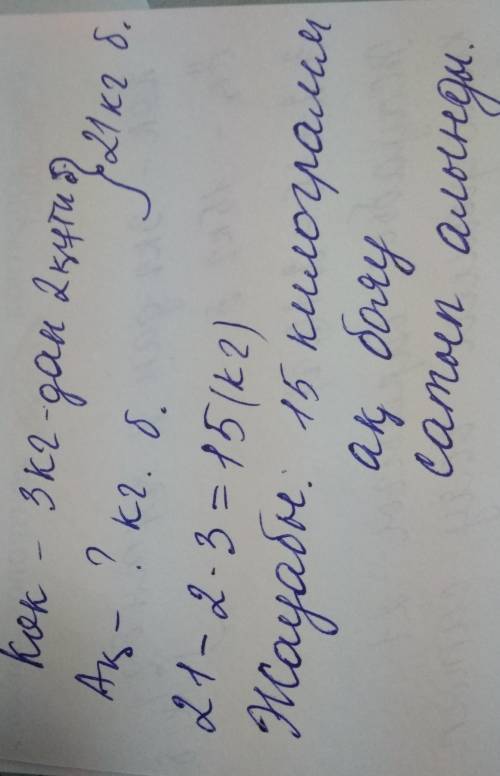 Көк - 3кг-дан 2 құти б. } 21 кг б.
Ақ - ? кг. б.
21 - 2 · 3 = 15 (кг)
Жауабы: 15 килограмм
ақ бояу
сатып алынды.